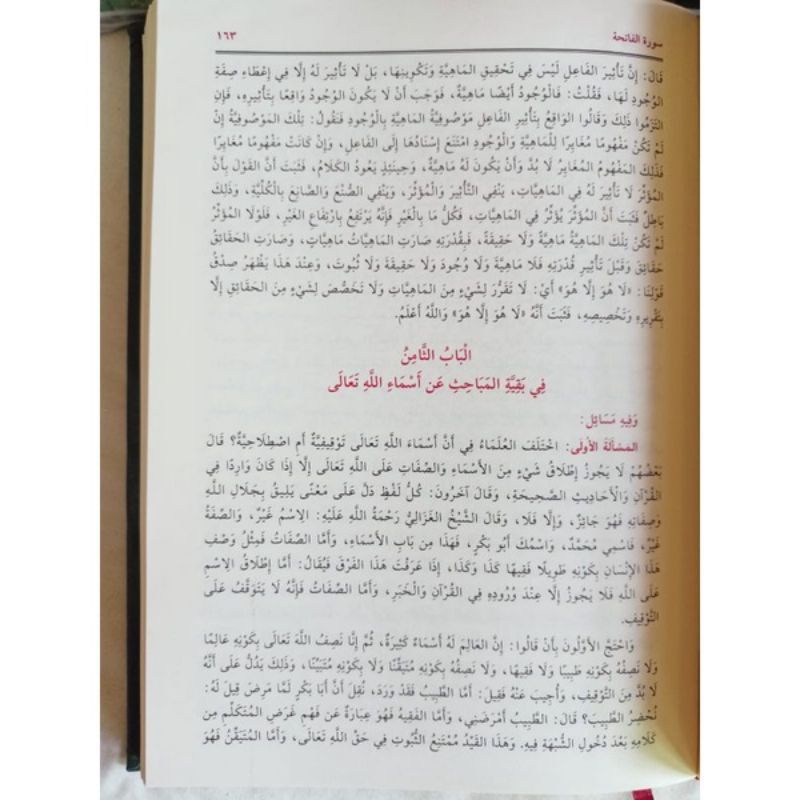 سورة الفاتحة ١٦٣
قَالَ: إِنَّ تَأْثِيرَ الفَاعِلِ لَيْسَ فِي تَحْقِيقِ المَاهِيَّةِ وَتَكْوِينِهَا، بَلْ لَا تَأْثِيرَ لَهُ إِلَّا فِي إِعْطَاءِ صِفَةِ
الوُجُودِ لَهَا، فَقُلْتُ: فَالْوُجُودُ أَيْضًا مَاهِيَّةٌ، فَوَجَبَ أَنْ لَا يَكُونَ الوُجُودُ وَاقِعًا بِتَأْثِيرِهِ، فَإِنِ
التَزَمُوا ذَلِكَ وَقَالُوا الوَاقِعُ بِتَأْثِيرِ الفَاعِلِ مَوْصُوفِيَّةُ المَاهِيَّةِ بِالْوُجُودِ فَنَقُولُ: تِلْكَ المَوْصُوفِيَّةُ إِنْ
لَمْ تَكُنْ مَفْهُومًا مُغَايِرًا لِلْمَاهِيَّةِ وَالْوُجُودِ امْتَنَعَ إِسْنَادُهَا إِلَى الفَاعِلِ، وَإِنْ كَانَتْ مَفْهُومًا مُغَايِرًا
فَذَلِكَ المَفْهُومُ المُغَايِرُ لَا بُدَّ وَأَنْ يَكُونَ لَهُ مَاهِيَّةٌ، وَحِينَئِذٍ يَعُودُ الكَلَامُ، فَثَبَتَ أَنَّ القَوْلَ بِأَنَّ
المُؤَثِّرَ لَا تَأْثِيرَ لَهُ فِي المَاهِيَّاتِ، يَنْفِي التَّأْثِيرَ وَالْمُؤَثِّرَ، وَيَنْفِي الصُّنْعَ وَالصَّانِعَ بِالْكُلِّيَّةِ، وَذَلِكَ
بَاطِلٌ فَثَبَتَ أَنَّ المُؤَثِّرَ يُؤَثِّرُ فِي المَاهِيَّاتِ، فَكُلُّ مَا بِالْغَيْرِ فَإِنَّهُ يَرْتَفِعُ بِارْتِفَاعِ الغَيْرِ، فَلَوْلَا المُؤَثِّرُ
لَمْ تَكُنْ تِلْكَ المَاهِيَّةُ مَاهِيَّةً وَلَا حَقِيقَةً، فَبِقُدْرَتِهِ صَارَتِ المَاهِيَّاتُ مَاهِيَّاتٍ، وَصَارَتِ الحَقَائِقُ
حَقَائِقَ وَقَبْلَ تَأْثِيرِ قُدْرَتِهِ فَلَا مَاهِيَّةَ وَلَا وُجُودَ وَلَا حَقِيقَةَ وَلَا ثُبُوتَ، وَعِنْدَ هَذَا يَظْهَرُ صِدْقُ
قَوْلِنَا: «لَا هُوَ إِلَّا هُوَ» أَيْ: لَا تَقَرُّرَ لِشَيْءٍ مِنَ المَاهِيَّاتِ وَلَا تَخَصُّصَ لِشَيْءٍ مِنَ الحَقَائِقِ إِلَّا
بِتَقْرِيرِهِ وَتَخْصِيصِهِ، فَثَبَتَ أَنَّهُ «لَا هُوَ إِلَّا هُوَ» وَاللَّهُ أَعْلَمُ.
الْبَابُ الثَّامِنُ
فِي بَقِيَّةِ المَبَاحِثِ عَن أَسْمَاءِ اللَّهِ تَعَالَى
وَفِيهِ مَسَائِل:
المَسْأَلَةُ الأُولَى: اخْتَلَفَ العُلَمَاءُ فِي أَنَّ أَسْمَاءَ اللَّهِ تَعَالَى تَوْقِيفِيَّةٌ أَمِ اصْطِلَاحِيَّةٌ؟ قَالَ
بَعْضُهُمْ لَا يَجُوزُ إِطْلَاقُ شَيْءٍ مِنَ الأَسْمَاءِ وَالصِّفَاتِ عَلَى اللَّهِ تَعَالَى إِلَّا إِذَا كَانَ وَارِدًا فِي
القُرْآنِ وَالأَحَادِيثِ الصَّحِيحَةِ، وَقَالَ آخَرُونَ: كُلُّ لَفْظٍ دَلَّ عَلَى مَعْنًى يَلِيقُ بِجَلَالِ اللَّهِ
وَصِفَاتِهِ فَهُوَ جَائِزٌ، وَإِلَّا فَلَا، وَقَالَ الشَّيْخُ الغَزَالِيُّ رَحْمَةُ اللَّهِ عَلَيْهِ: الِاسْمُ غَيْرٌ، وَالصِّفَةُ
غَيْرٌ، فَاسْمِي مُحَمَّدٌ، وَاسْمُكَ أَبُو بَكْرٍ، فَهَذَا مِن بَابِ الأَسْمَاءِ، وَأَمَّا الصِّفَاتُ فَمِثْلُ وَصْفِ
هَذَا الإِنْسَانِ بِكَوْنِهِ طَوِيلًا فَقِيهًا كَذَا وَكَذَا، إِذَا عَرَفْتَ هَذَا الفَرْقَ فَيُقَالُ: أَمَّا إِطْلَاقُ الِاسْمِ
عَلَى اللَّهِ فَلَا يَجُوزُ إِلَّا عِنْدَ وُرُودِهِ فِي القُرْآنِ وَالْخَبَرِ، وَأَمَّا الصِّفَاتُ فَإِنَّهُ لَا يَتَوَقَّفُ عَلَى
التَّوْقِيفِ.
وَاحْتَجَّ الأَوَّلُونَ بِأَنْ قَالُوا: إِنَّ العَالِمَ لَهُ أَسْمَاءٌ كَثِيرَةٌ، ثُمَّ إِنَّا نَصِفُ اللَّهَ تَعَالَى بِكَوْنِهِ عَالِمًا
وَلَا نَصِفُهُ بِكَوْنِهِ طَبِيبًا وَلَا فَقِيهًا، وَلَا نَصِفُهُ بِكَوْنِهِ مُتَيَقِّنًا وَلَا بِكَوْنِهِ مُتَبَيِّنًا، وَذَلِكَ يَدُلُّ عَلَى أَنَّهُ
لَا بُدَّ مِنَ التَّوْقِيفِ، وَأُجِيبَ عَنْهُ فَقِيلَ: أَمَّا الطَّبِيبُ فَقَدْ وَرَدَ، نُقِلَ أَنَّ أَبَا بَكْرٍ لَمَّا مَرِضَ قِيلَ لَهُ:
نُحْضِرُ الطَّبِيبَ؟ قَالَ: الطَّبِيبُ أَمْرَضَنِي، وَأَمَّا الفَقِيهُ فَهُوَ عِبَارَةٌ عَن فَهْمِ غَرَضِ المُتَكَلِّمِ مِن
كَلَامِهِ بَعْدَ دُخُولِ الشُّبْهَةِ فِيهِ. وَهَذَا القَيْدُ مُمْتَنِعُ الثُّبُوتِ فِي حَقِّ اللَّهِ تَعَالَى، وَأَمَّا المُتَيَقِّنُ فَهُوَ